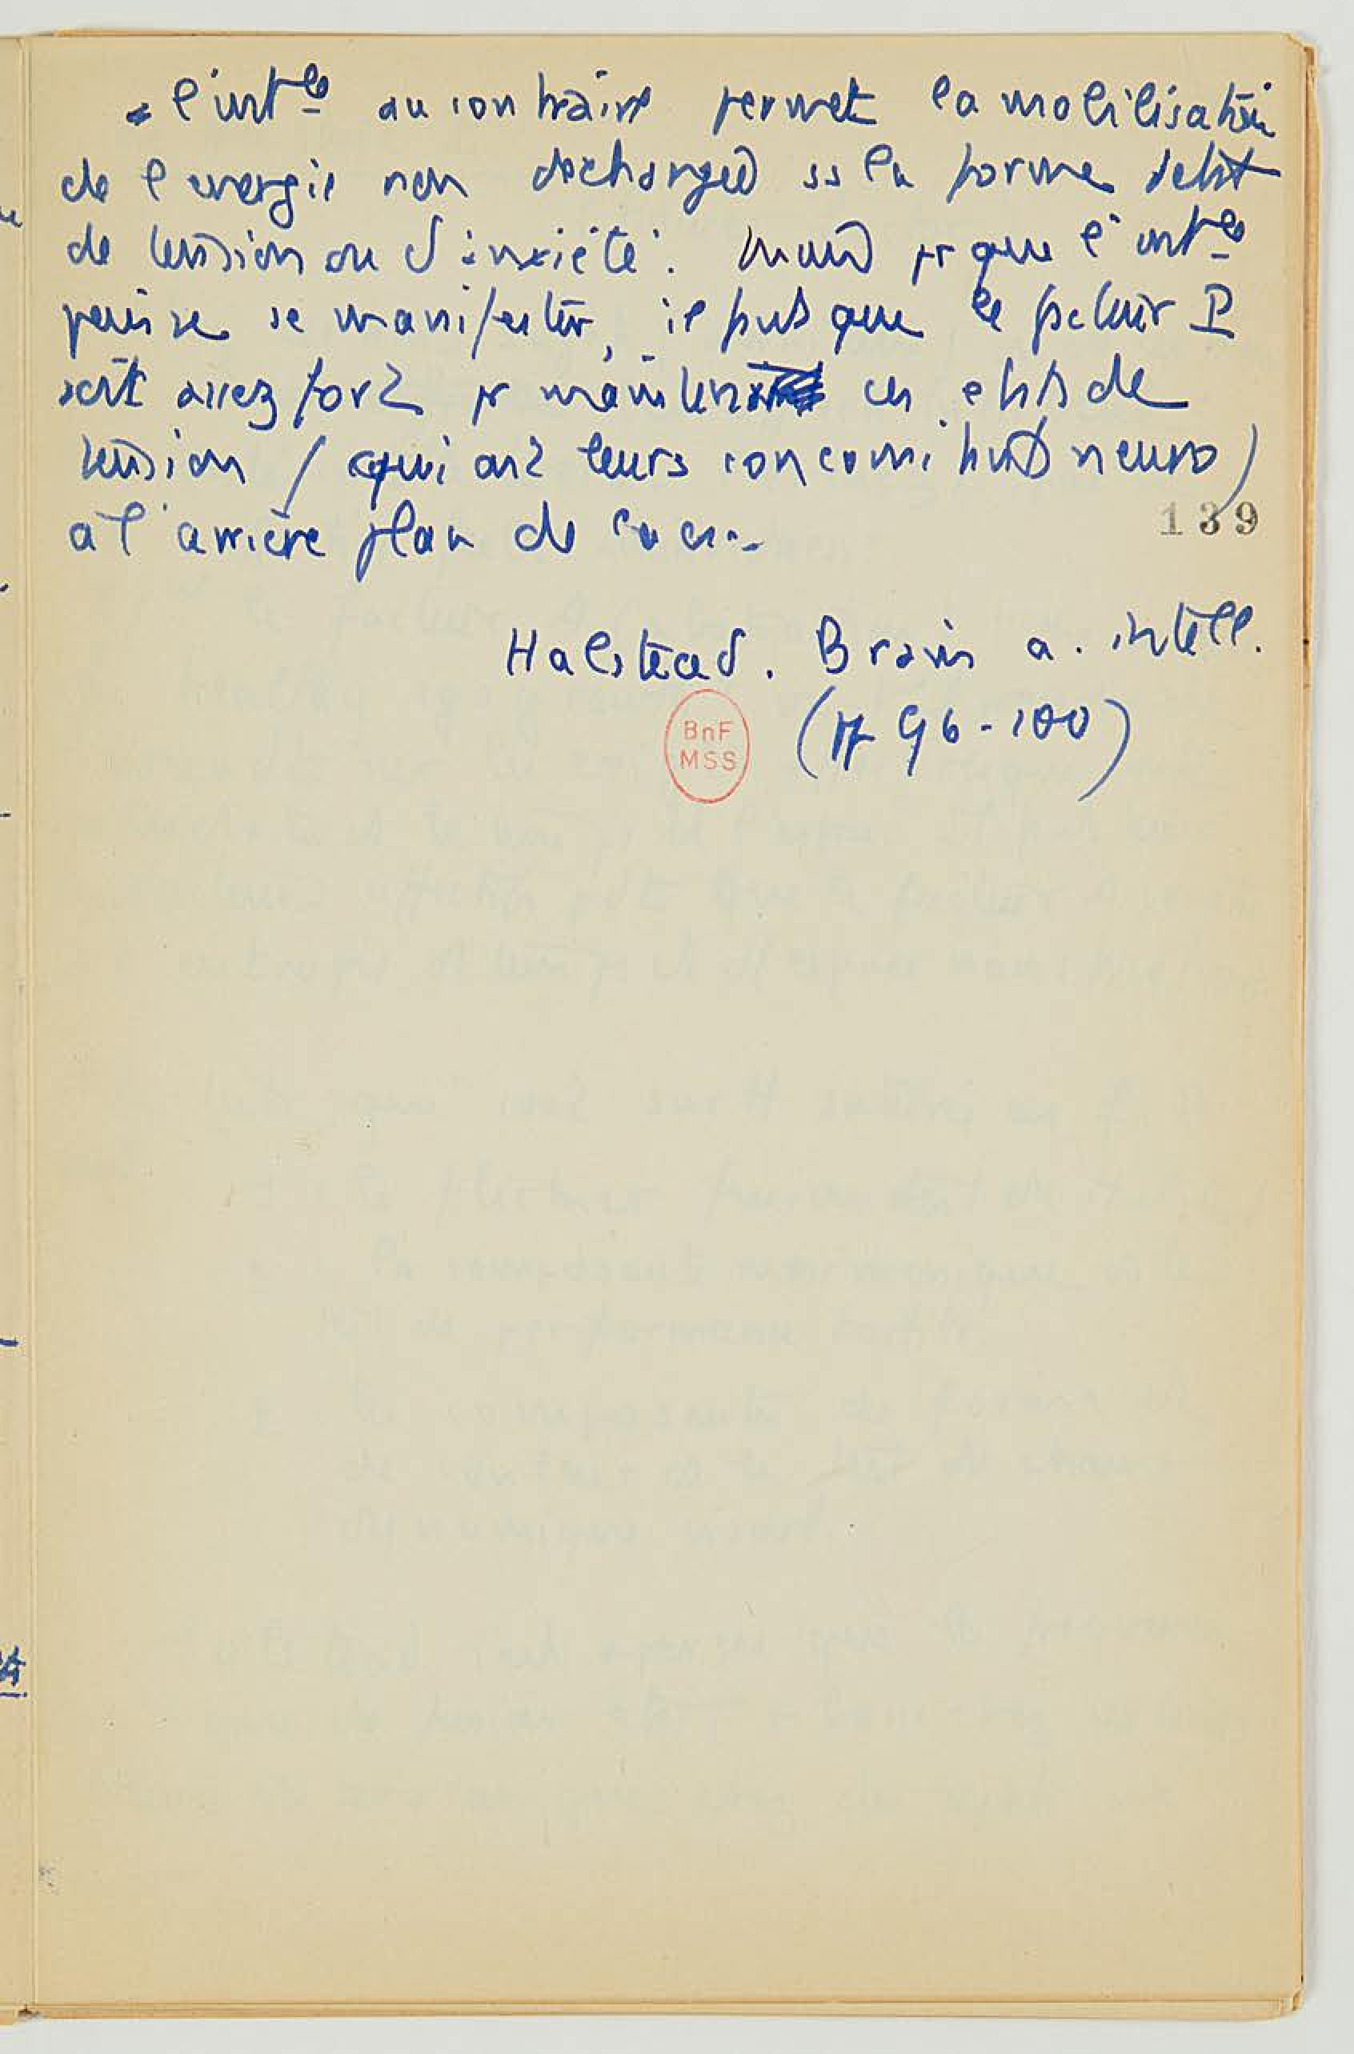 l'int^ce au contraire permet la mobilisation
de l'energie non dechargée ss la forme d'etat
de tension ou d'anxiété. Mais pr que l'int^ce
puisse se manifester, il faut que le facteur P
soit assez fort pr maintenir ces etats de
tension (qui ont leurs concomitants neuro)
à l'arrière plan de
139
Halstead. Brain a. intell.
(pp 96-100)
BnF
MSS